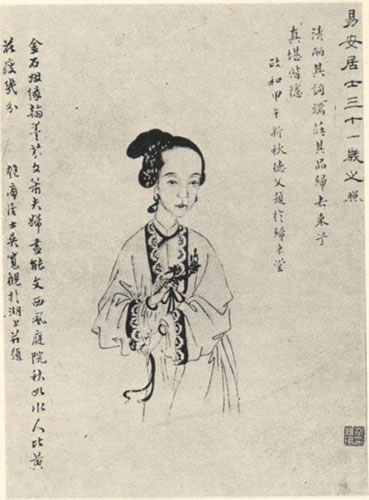 易安居士三十一歲之照
清麗其詞端莊其品歸去來兮
真堪偕隱
政和甲午新秋德父題於歸來堂
金石姻緣翰墨芬文簫夫婦盡能文西風庭院秋如水人比黃
花瘦幾分 匏庵居士吳寬觀於湖上並題